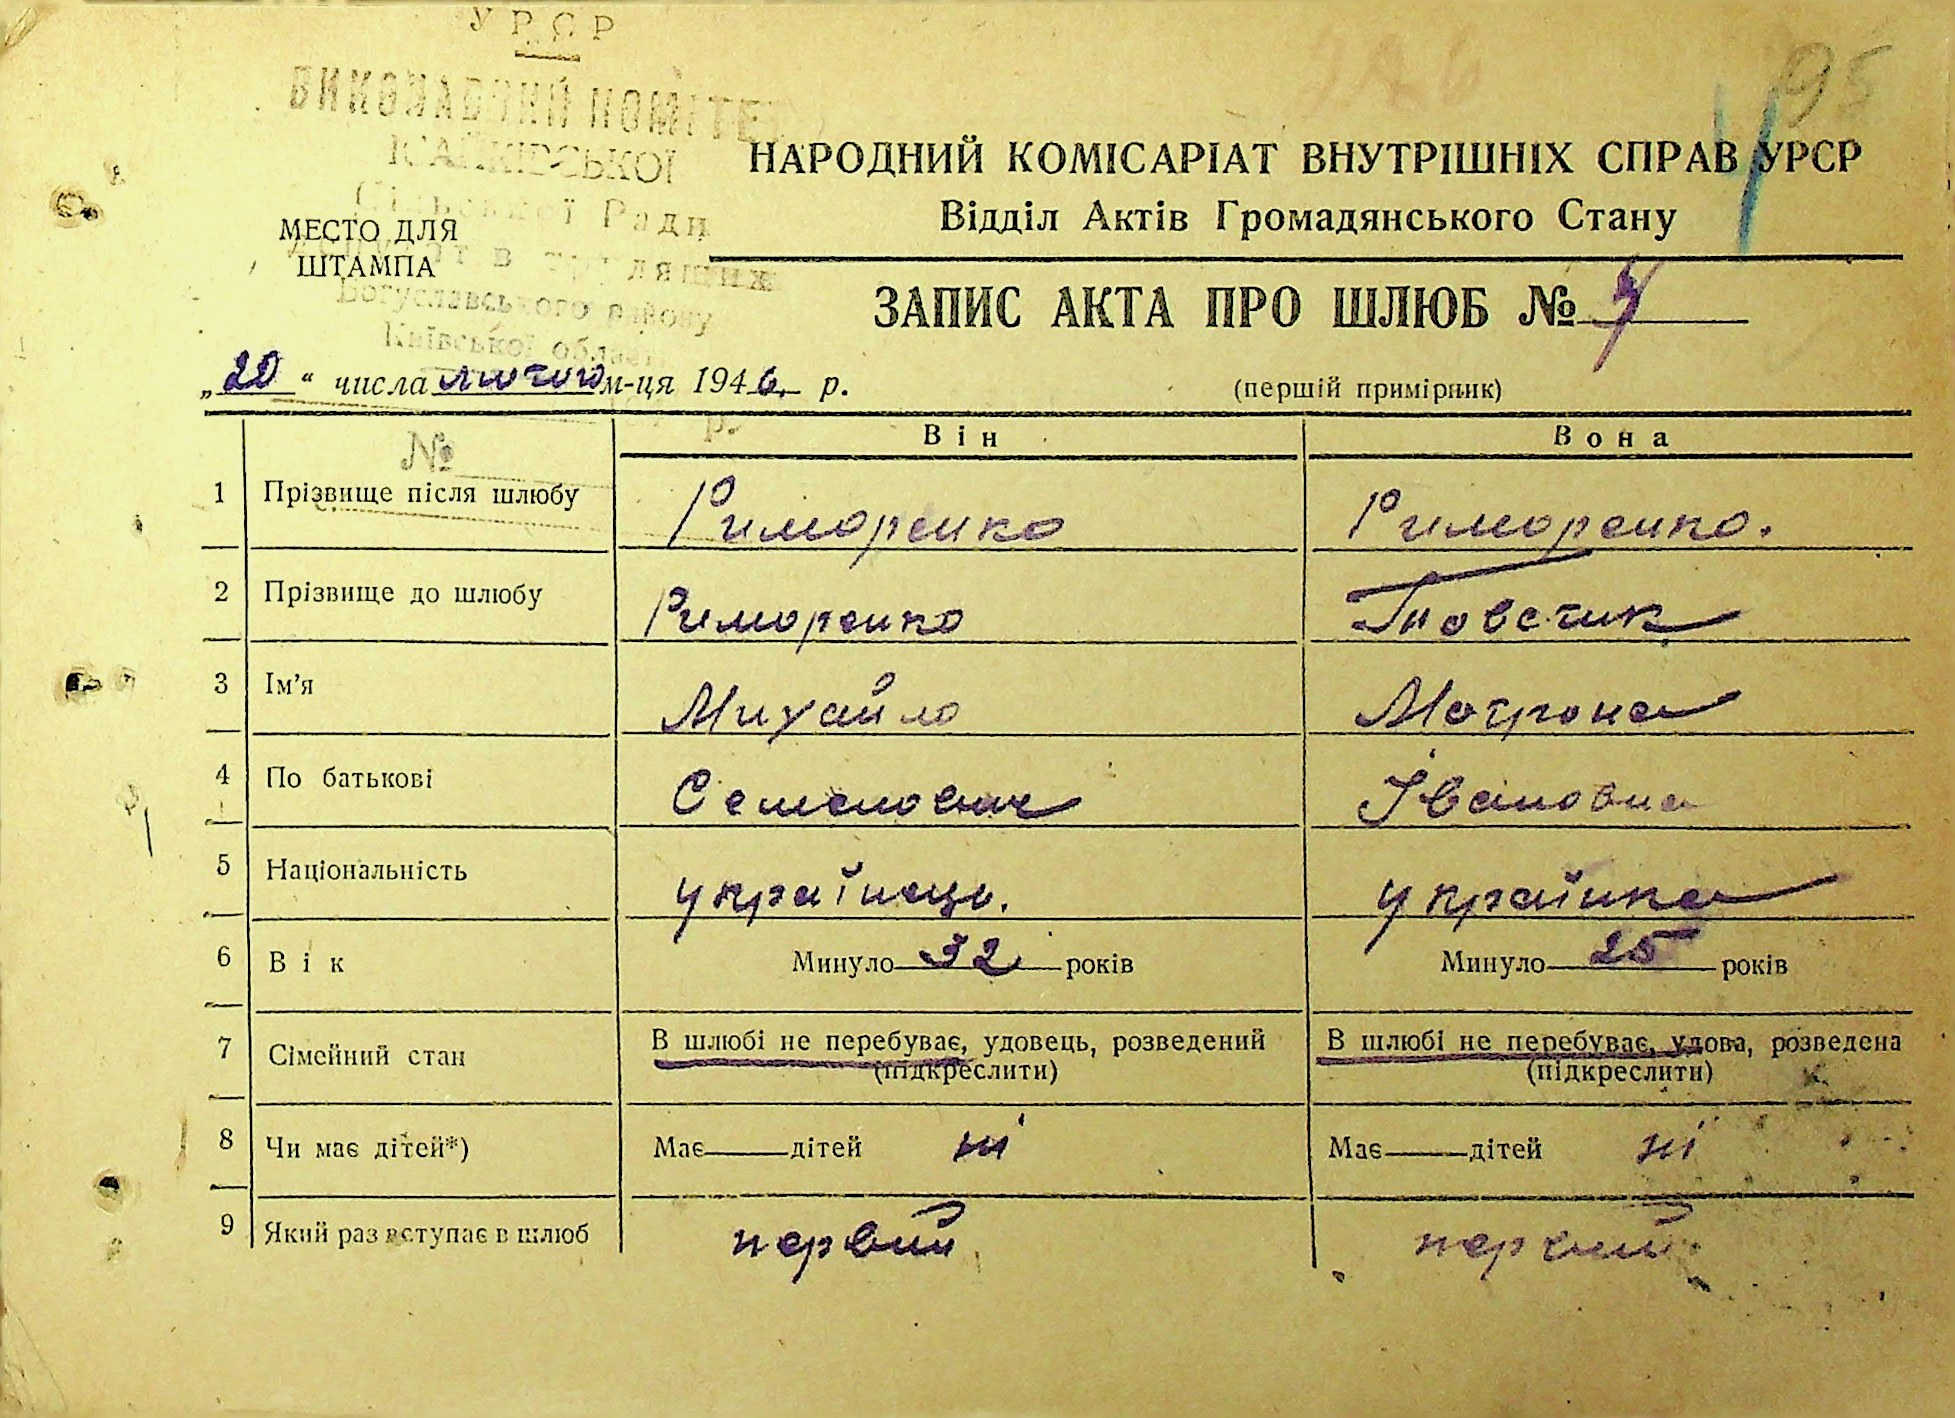 УРСР
ВИКОНАВЧИЙ КОМІТЕ
Сільської Ради
депутатів трудящих
Богуславського району
Київської області
95
НАРОДНИЙ КОМІСАРІАТ ВНУТРІШНІХ СПРАВ УРСР
Відділ Актів Громадянського Стану
МЕСТО ДЛЯ
ШТАМПА
ЗАПИС АКТА ПРО ШЛЮБ № 4
„20“ числа лютого м-ця 1946 р.
(першій примірник)
№
Він Вона
1 Прізвище після шлюбу Риморенко Риморенко.
2 Прізвище до шлюбу Риморенко Товстик
3 Ім’я Михайло Мотрона
4 По батькові Семенович Івановна
5 Національність українець. українка
6 Вік Минуло 32 років Минуло 25 років
7 Сімейний стан В шлюбі не перебуває, удовець, розведений В шлюбі не перебуває, удова, розведена
(підкреслити) (підкреслити)
8 Чи має дітей*) Має дітей ні Має дітей ні
9 Який раз вступає в шлюб первий первий